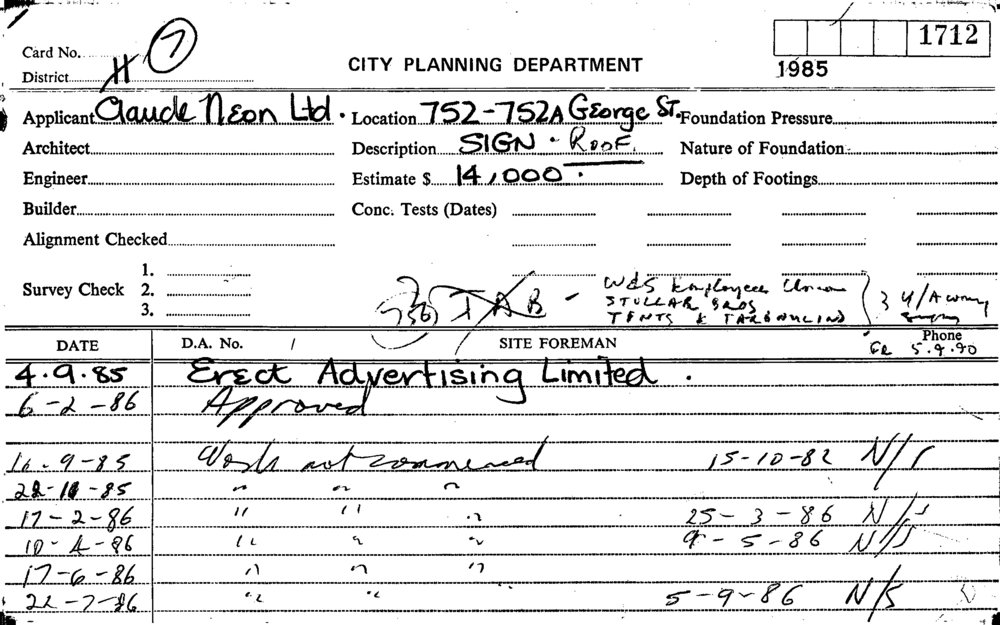 Card No. 7 1712
District H CITY PLANNING DEPARTMENT 1985
Applicant Claude Neon Ltd. Location 752-752A George St. Foundation Pressure
Architect Description SIGN - ROOF. Nature of Foundation
Engineer Estimate $ 14,000. Depth of Footings
Builder Conc. Tests (Dates)
Alignment Checked
1.
Survey Check 2. TAB - W&S Employees Union
3. STELLAR BROS 3 U/Awning
TENTS & TARPAULINS
Phone
DATE D.A. No. SITE FOREMAN 5.9.90
4.9.85 Erect Advertising Limited.
6-2-86 Approved
16-9-85 Work not commenced 15-10-82 N/S
-85 " " "
17-2-86 " " " 25-3-86 N/S
10-4-86 " " " 9-5-86 N/S
17-6-86 " " "
22-7-86 " " 5-9-86 N/S